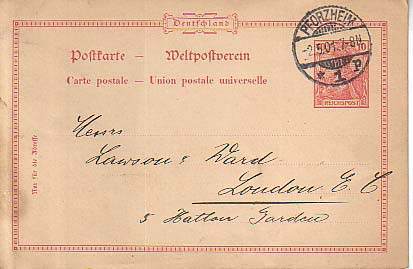 Deutschland
Postkarte — Weltpostverein
Carte postale — Union postale universelle
PFORZHEIM
-2.5.01.7-8N
* 1 P
REICHSPOST
Nur für die Adresse
Herrs
Lawson & Ward
London E C
5 Hatton Garden